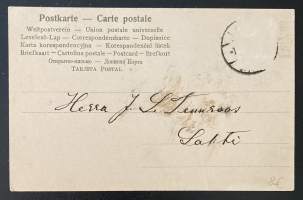 Postkarte — Carte postale
Weltpostverein — Union postale universelle
Levelezö-Lap — Correspondenzkarte — Dopisnice
Karta korespondencyjna — Korespondenční lístek
Briefkaart — Cartolina postale — Postcard — Brefkort
Открытое письмо — Дописна Карта
TARJETA POSTAL
Herra J. L. Tennroos
Lahti